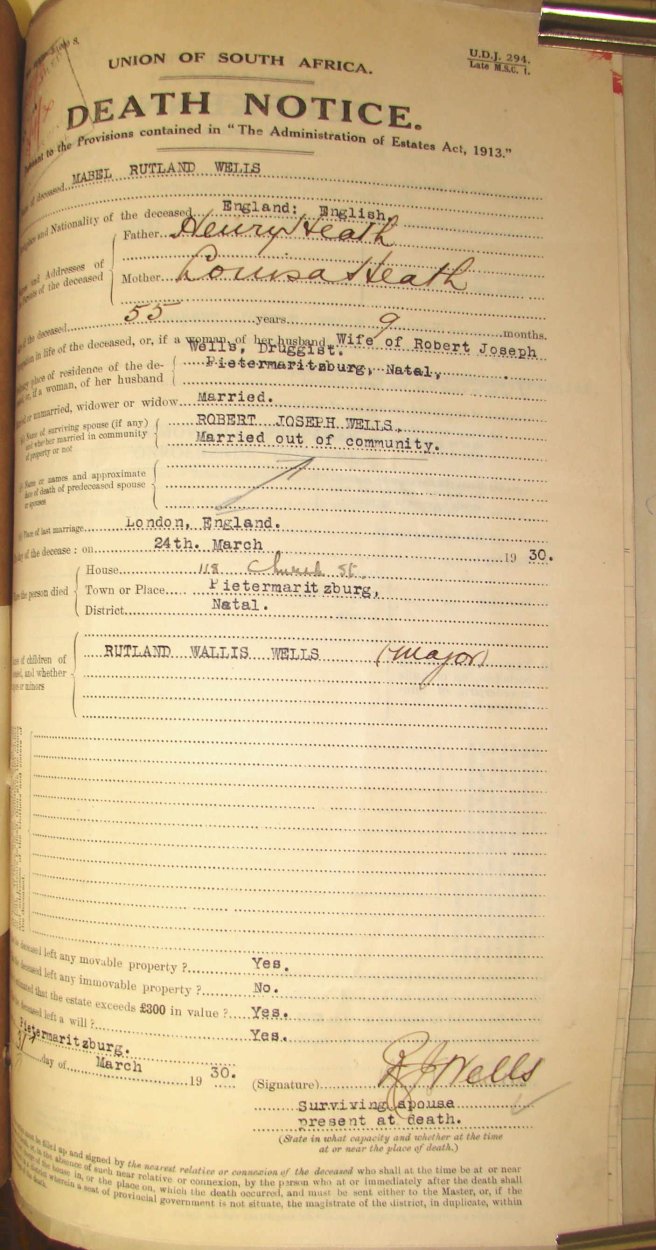 UNION OF SOUTH AFRICA.
U.D.J. 294.
Late M.S.C. 1.
DEATH NOTICE.
to the Provisions contained in "The Administration of Estates Act, 1913."
of deceased MABEL RUTLAND WELLS
and Nationality of the deceased England: English.
and Addresses of
of the deceased
Father Henry Heath
Mother Louisa Heath
of the deceased 55 years 9 months.
in life of the deceased, or, if a woman, of her husband Wife of Robert Joseph
Wells, Druggist.
place of residence of the de-
or, if a woman, of her husband
Pietermaritzburg, Natal,
or unmarried, widower or widow Married.
Name of surviving spouse (if any)
and whether married in community
of property or not
ROBERT JOSEPH WELLS.
Married out of community.
Name or names and approximate
date of death of predeceased spouse
or spouses
Place of last marriage London, England.
of the decease : on 24th. March 19 30.
the person died
House 118 Church St.
Town or Place Pietermaritzburg,
District Natal.
of children of
and whether
or minors
RUTLAND WALLIS WELLS (major)
deceased left any movable property ? Yes.
deceased left any immovable property ? No.
that the estate exceeds £300 in value ? Yes.
deceased left a will ? Yes.
Pietermaritzburg.
31st day of March 19 30.
(Signature) R J Wells
Surviving spouse
present at death.
(State in what capacity and whether at the time
at or near the place of death.)
must be filled up and signed by the nearest relative or connexion of the deceased who shall at the time be at or near
in the absence of such near relative or connexion, by the person who at or immediately after the death shall
of the house in, or the place on, which the death occurred, and must be sent either to the Master, or, if the
district wherein a seat of provincial government is not situate, the magistrate of the district, in duplicate, within
the death.